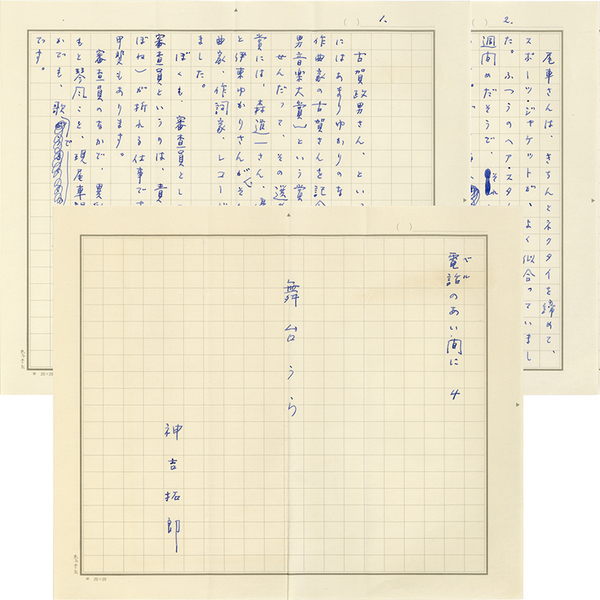 電話のあい間に 4
ベル
舞台うら
神吉拓郎
1.
古賀政男さん、とい
にはあまりゆかりのな
作曲家の古賀さんを記念
男音楽大賞〕という賞
せんだって、その選
賞には、森進一さん、
と伊東ゆかりさんがそ
曲家、作詞家、レコード
ました。
ぼくも、審査員とし
審査員というのは、責
ぼね)が折れる仕事です
甲斐もあります。
審査員のなかで、異
もと琴風こと、現尾車親
かでも、歌で
です。
2.
尾車さんは、きちんとネクタイを締めて、
スポーツ・ジャケットが、よく似合っていまし
た。ふつうのヘア・スタ
週間めだそうで、それ
20×20
20×20